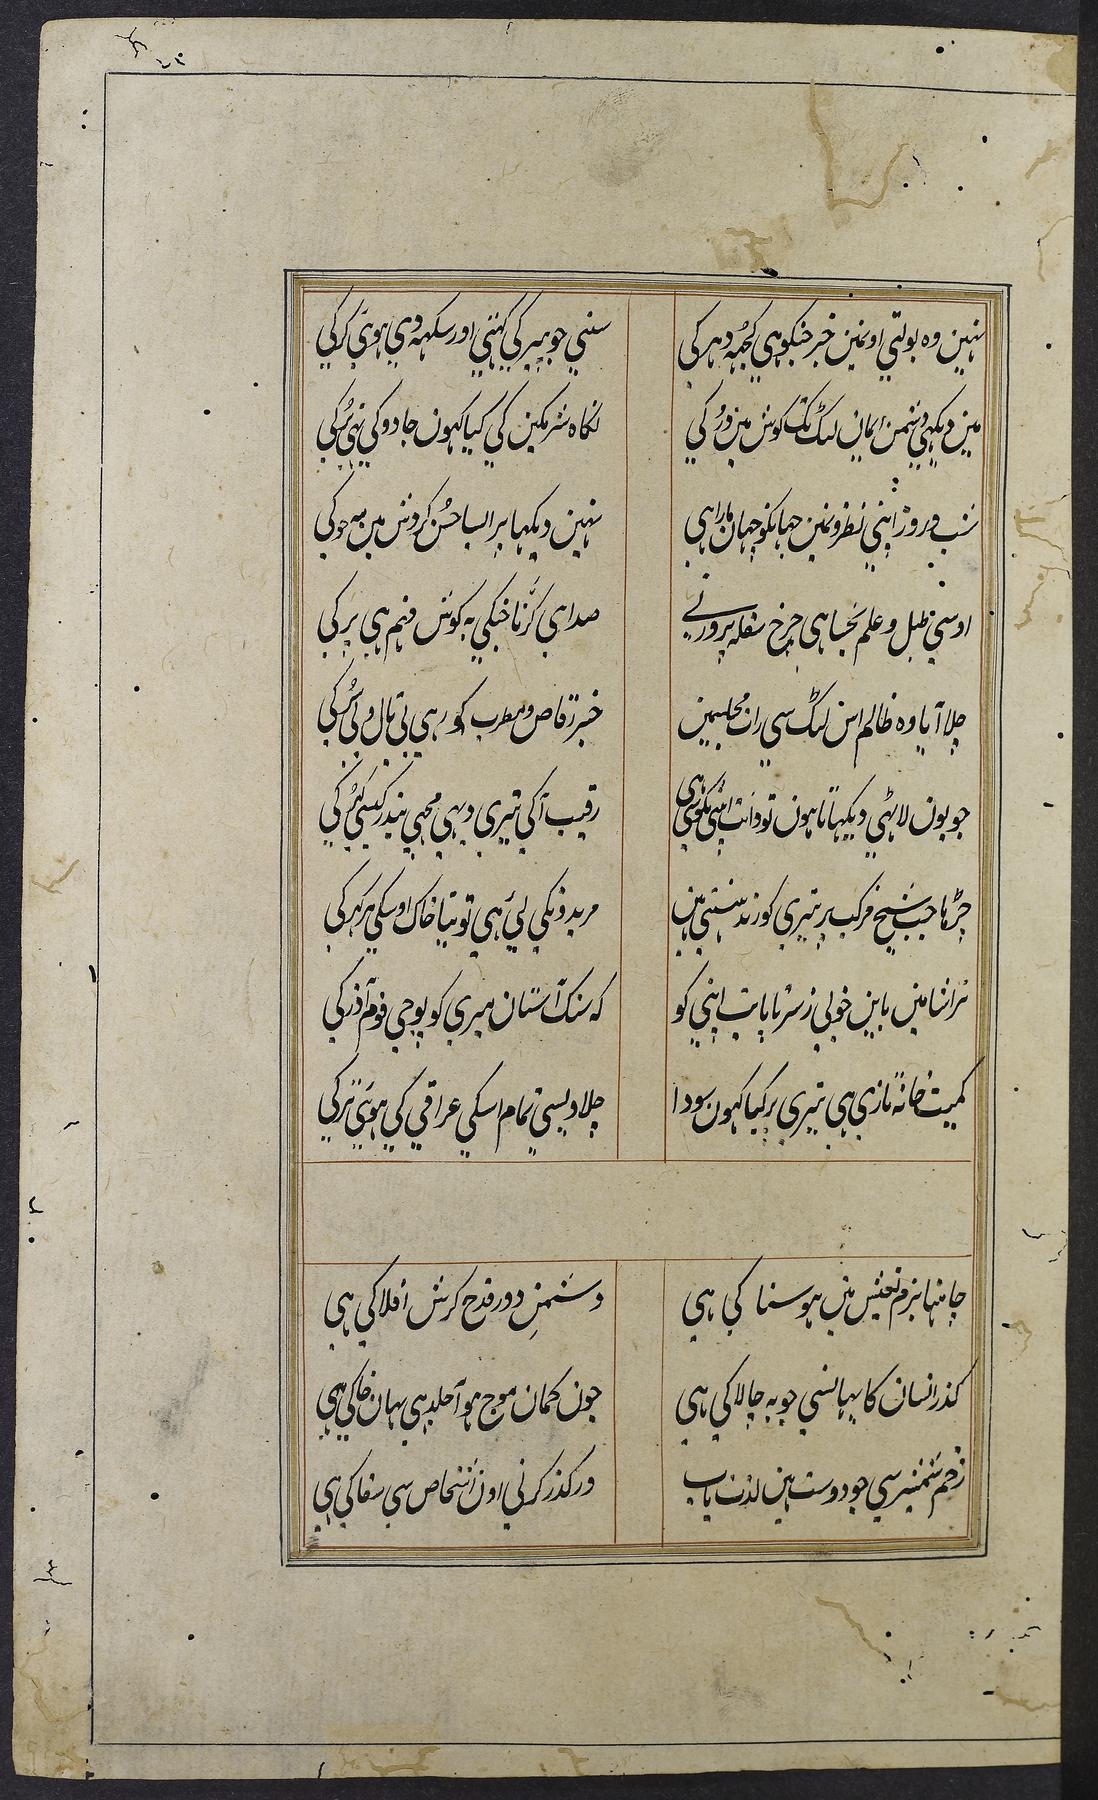 نہین وه بولتی اونمین خبر جنکو ہی کجہہ دہر کی
سنی جو پیر کی کہتی اور سکہہ دی ہوئی کر کی
مین دیکہی دشمن ایمان لٹک گوش مین در کی
نکاه شرمکین کی کیا کہون جادو کی
شب و روز اپنی نظرونمین جہانکو جہان مارا ہی
نہین دیکہا پر ایسا حسن کردش مین مہ و کی
اوسی طبل و علم بخشا ہی چرخ سفله پرور نی
صدا ہی کرنا جنکی به کوش فہم ہی پر کی
چلا آیا وه ظالم اس لٹک سی رات مجلسمین
خبر رقاص و مطرب کو رہی نی تال و نی سر کی
جو یون لاٹہی دیکہاتا ہون تو دانت اپنی نکوسی ہی
رقیب آکی تیری دیہی مجہی بندر کیسی کہر کی
چڑہا جب شیخ مرکب پر تیری کو رند ہنستی ہین
مریدونکی لیئی ہی توتیا خاک اوسکی ہر کہر کی
تراشا مین باین خوبی ز سر تا پا بت اپنی کو
که سنک آستان میری کو پوجی قوم آذر کی
کمیت خانهٔ تازی ہی تیری پر کیا کہون سودا
چلاو یسی تمام اسکی عراقی کی ہوئی ترکی
چاہنا بزم تعیش مین ہوسنا کی ہی
دشمن دور قدح کردش افلاکی ہی
کذر انسان کا یہانسی جو به چالاکی ہی
جون کمان موج ہوا جلد ہی یہان خاکی ہی
زخم شمشیر سی جو دوست ہین لذت یاب
درکذر کرنی اون اشخاص سی سفاکی ہی